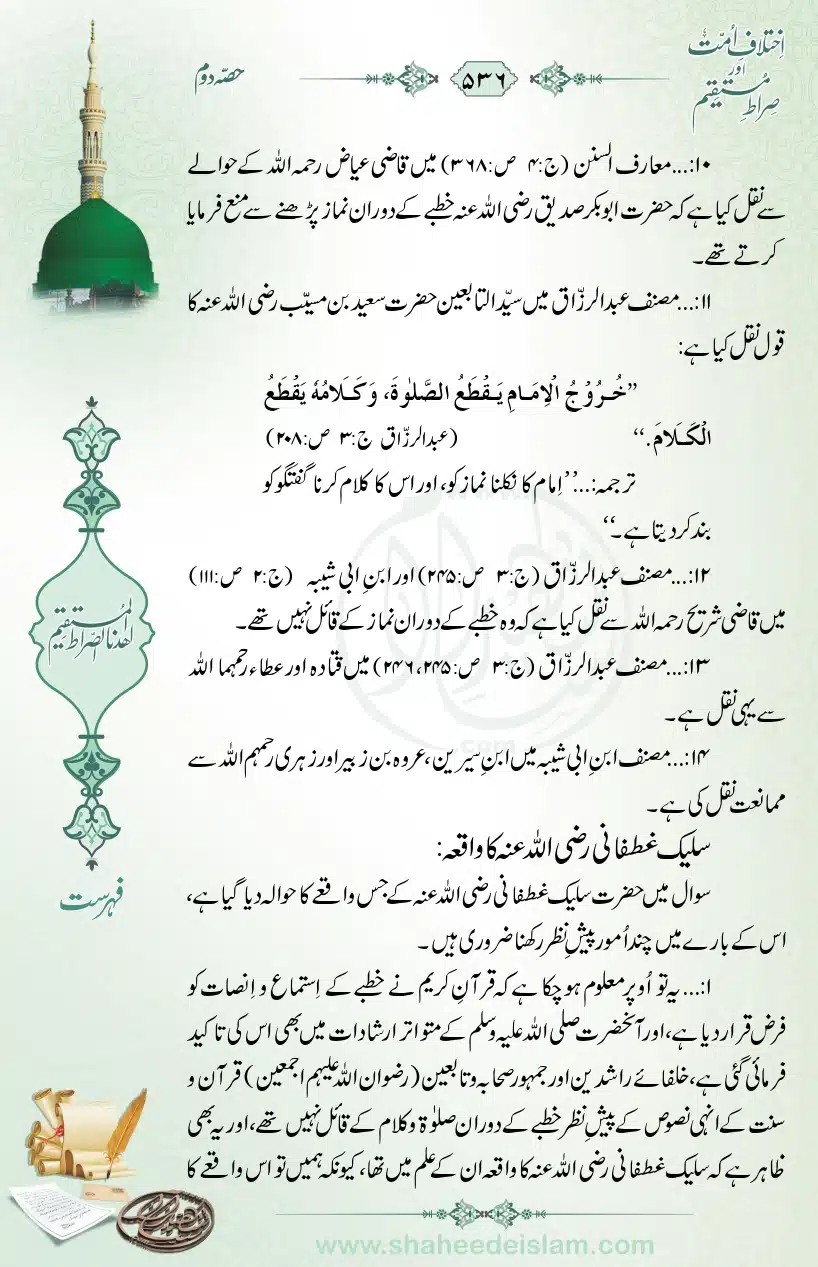 اِختلافِ اُمّت
اور
صراطِ مُستقیم
۵۳۶
حصّہ دوم
۱۰:...معارف السنن (ج:۴ ص:۳۶۸) میں قاضی عیاض رحمہ اللہ کے حوالے
سے نقل کیا ہے کہ حضرت ابوبکر صدیق رضی اللہ عنہ خطبے کے دوران نماز پڑھنے سے منع فرمایا
کرتے تھے۔
۱۱:...مصنف عبدالرزّاق میں سیّد التابعین حضرت سعید بن مسیّب رضی اللہ عنہ کا
قول نقل کیا ہے:
”خُرُوْجُ الْاِمَامِ يَقْطَعُ الصَّلٰوةَ، وَكَلَامُهٗ يَقْطَعُ
الْكَلَامَ.“ (عبدالرزّاق ج:۳ ص:۲۰۸)
ترجمہ:...’’اِمام کا نکلنا نماز کو، اور اس کا کلام کرنا گفتگو کو
بند کردیتا ہے۔‘‘
۱۲:...مصنف عبدالرزّاق (ج:۳ ص:۲۴۵) اور ابنِ ابی شیبہ (ج:۲ ص:۱۱۱)
میں قاضی شریح رحمہ اللہ سے نقل کیا ہے کہ وہ خطبے کے دوران نماز کے قائل نہیں تھے۔
۱۳:...مصنف عبدالرزّاق (ج:۳ ص:۲۴۵، ۲۴۶) میں قتادہ اور عطاء رحمہما اللہ
سے یہی نقل ہے۔
۱۴:...مصنف ابنِ ابی شیبہ میں ابنِ سیرین، عروہ بن زبیر اور زہری رحمہم اللہ سے
ممانعت نقل کی ہے۔
سلیک غطفانی رضی اللہ عنہ کا واقعہ:
سوال میں حضرت سلیک غطفانی رضی اللہ عنہ کے جس واقعے کا حوالہ دیا گیا ہے،
اس کے بارے میں چند اُمور پیشِ نظر رکھنا ضروری ہیں۔
۱:...یہ تو اُوپر معلوم ہوچکا ہے کہ قرآنِ کریم نے خطبے کے اِستماع و اِنصات کو
فرض قرار دیا ہے، اور آنحضرت صلی اللہ علیہ وسلم کے متواتر ارشادات میں بھی اس کی تاکید
فرمائی گئی ہے، خلفائے راشدین اور جمہور صحابہ و تابعین (رضوان اللہ علیہم اجمعین) قرآن و
سنت کے انہی نصوص کے پیشِ نظر خطبے کے دوران صلوٰۃ و کلام کے قائل نہیں تھے، اور یہ بھی
ظاہر ہے کہ سلیک غطفانی رضی اللہ عنہ کا واقعہ ان کے علم میں تھا، کیونکہ ہمیں تو اس واقعے کا
اهدنا الصراط المستقیم
فہرست
www.shaheedeislam.com